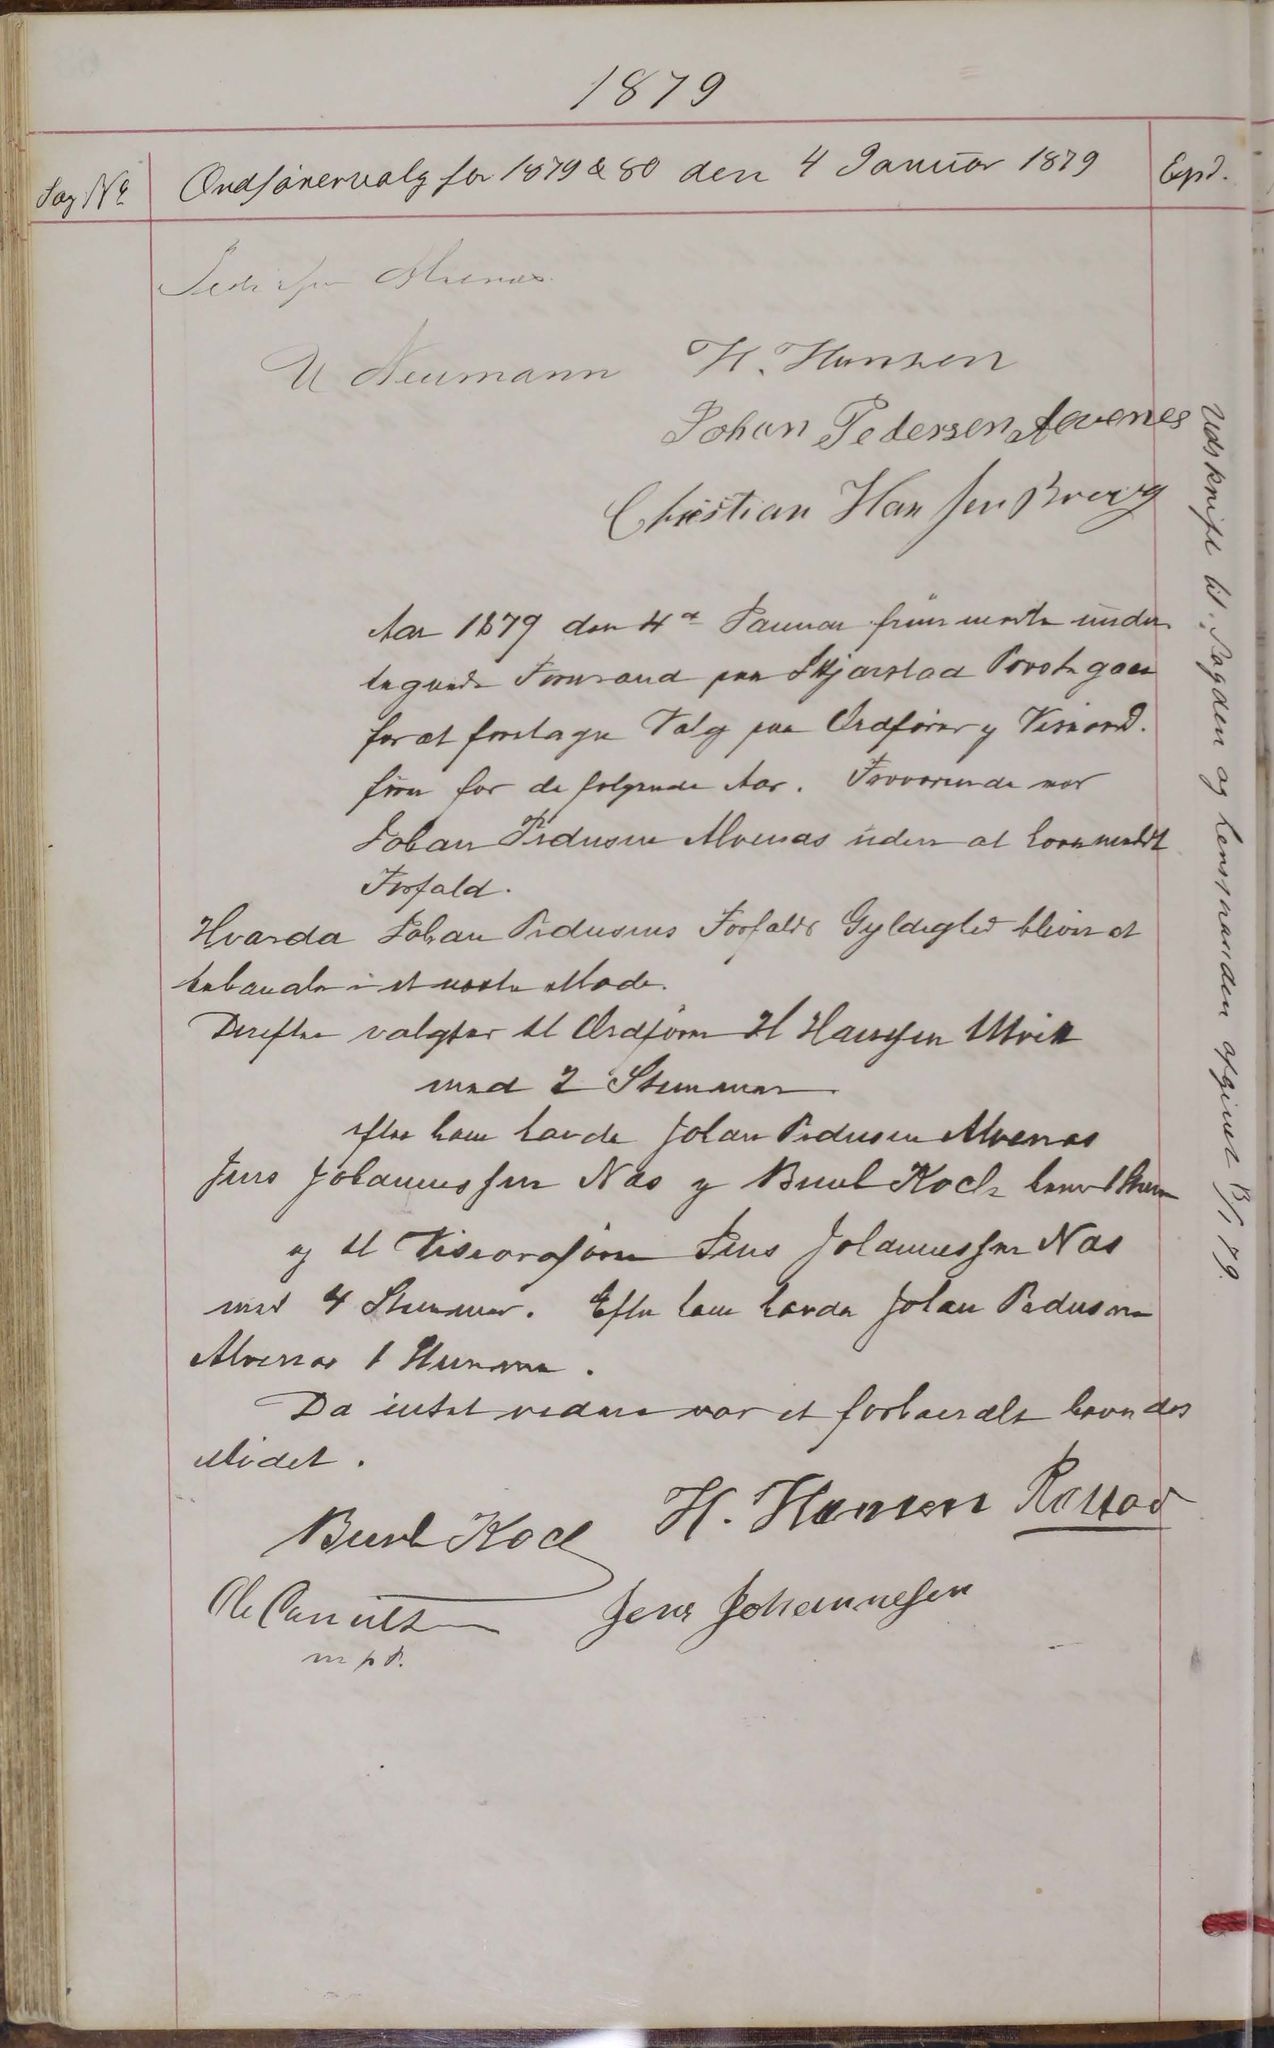 1879
Sag No
Ordførervalg for 1879 & 80 den 4 Januar 1879
Expd.
U Neumann
H. Hansen
Johan Pedersen Alvenes
Christian Hansen
Aar 1879 den 4de Januar fremmødte under
tegnede Formænd paa Skjerstad Præstegaar
for at foretage Valg paa Ordfører og Viseord.
fører for de følgende Aar. Fraværende var
Johan Pedersen Alvenæs uden at have meldt
Forfald.
Hvorda Johan Pedersens Forfalds Gyldighed bliver at
behandle i et næste Møde.
Derefter valgtes til Ordfører H Hanssen Utvik
med 2 Stemmer
efter ham havde Johan Pedersen Alvenæs
Jens Johannessen Næs og Bernt Koch hver 1 Stem
og til Viseordfører Jens Johannessen Næs
med 4 Stemmer. Efter ham havde Johan Pedersen
Alvenæs 1 Stemme.
Da intet videre var at forhandle hævedes
Mødet.
Bernt Koch
H. Hansen
Ole
Jens Johannesen
m p P.
Udskrift til Fogden og Lensmanden afgivet 13/1 79.